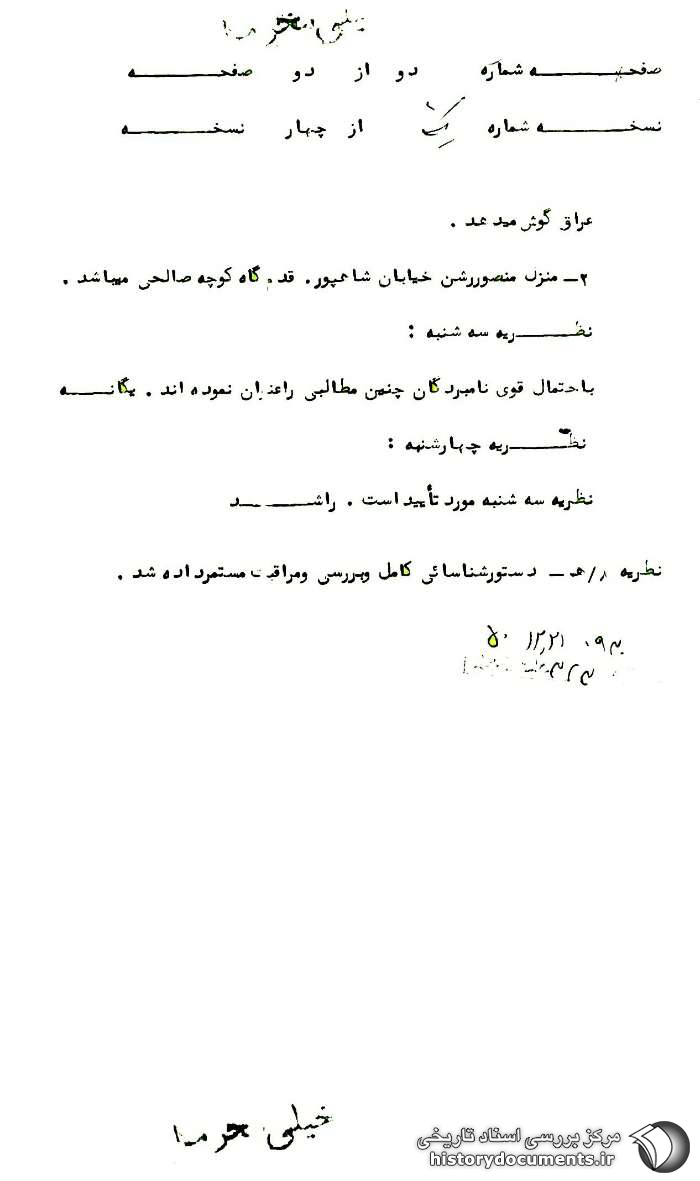 خیلی محرمانه
صفحـــــــه شماره دو از دو صفحـــــــه
نسخـــــــه شماره یک از چهار نسخـــــــه
عراق گوش میدهد .
۲ـ منزل منصوررشن خیابان شاهپور. قدمگاه کوچه صالحی میباشد .
نظـــــــریه سه شنبه :
باحتمال قوی نامبردگان چنین مطالبی راعنوان نموده اند . یگانـــــه
نظـــــــریه چهارشنبه :
نظریه سه شنبه مورد تأیید است . راشـــــد
نظریه ۸/هـ ـ دستورشناسائی کامل وبررسی ومراقبت مستمرداده شد .
خیلی محرمانه
مرکز بررسی اسناد تاریخی
historydocuments.ir